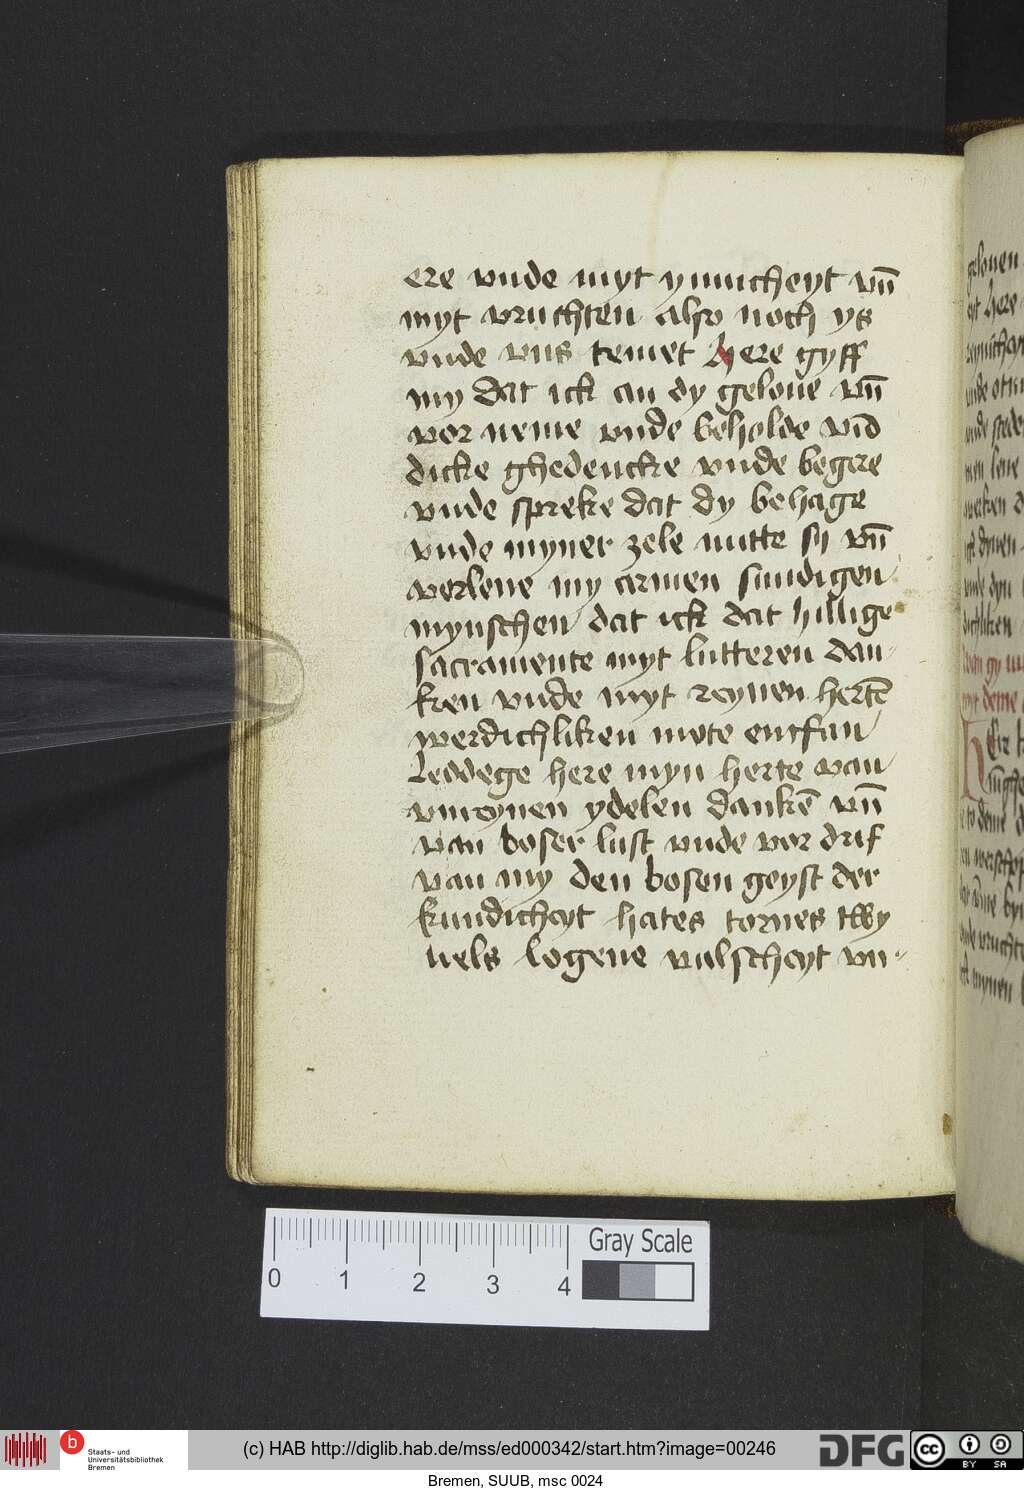 ere vnde myt ynnicheyt vn̄
myt vruchten also noch ys
vnde vns temet here gyff
my dat ick an dy geloue vn̄
vor neme vnde beholde vn̄d
dicke ghedencke vnde begere
vnde spreke dat dy behage
vnde myner zele nutte sy vn̄
verlene my armen sundigen
mynschen dat ick dat hillige
sacramente myt lutteren dan-
ken vnde myt reynen hertē
werdichliken mote entfan
Leddege here myn herte van
vnreynen ydelen dankē vn̄
van boser lust vnde vor drif
van my den bosen geyst der
kundicheyt hates tornes twy
uels logene valscheyt vn-
gelouen
here
vnde
vnde stede
dynen
vnde dyn
to deme
vnde vruchte
mynen
0 1 2 3 4
Gray Scale
b
Staats- und
Universitätsbibliothek
Bremen
(c) HAB http://diglib.hab.de/mss/ed000342/start.htm?image=00246
DFG
cc
BY SA
Bremen, SUUB, msc 0024